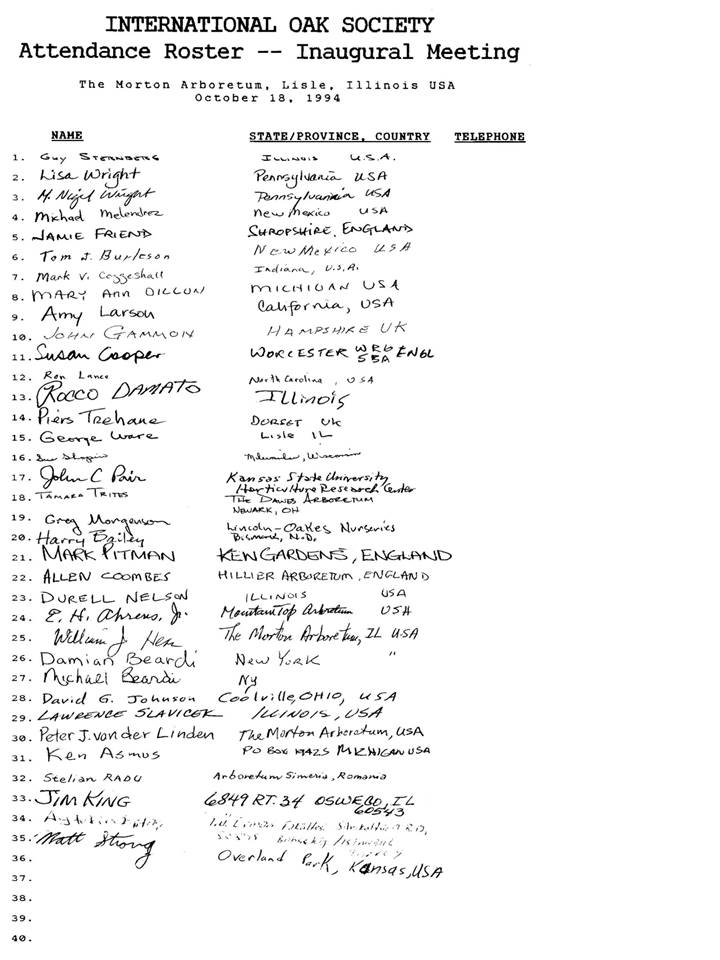 INTERNATIONAL OAK SOCIETY
Attendance Roster -- Inaugural Meeting
The Morton Arboretum, Lisle, Illinois USA
October 18, 1994
NAME STATE/PROVINCE, COUNTRY TELEPHONE
1. Guy STERNBERG ILLINOIS U.S.A.
2. Lisa Wright Pennsylvania USA
3. M. Nigel Wright Pennsylvania USA
4. Michael Melendrez New Mexico USA
5. JAMIE FRIEND SHROPSHIRE, ENGLAND
6. Tom J. Burleson New Mexico USA
7. Mark V. Coggeshall Indiana, U.S.A.
8. MARY Ann DILLON MICHIGAN USA
9. Amy Larson California, USA
10. JOHN GAMMON HAMPSHIRE UK
11. Susan Cooper WORCESTER WR6 ENGL
5BA
12. Ron Lance North Carolina, USA
13. ROCCO DAMATO Illinois
14. Piers Trehane DORSET UK
15. George Ware Lisle IL
16. Wisconsin
17. John C Pair Kansas State University
Horticulture Research Center
18. TAMARA TRITES THE DAWES ARBORETUM
NEWARK, OH
19. Greg Morgenson Lincoln-Oakes Nurseries
20. Harry Bailey Bismarck, N.D.
21. MARK PITMAN KEW GARDENS, ENGLAND
22. ALLEN COOMBES HILLIER ARBORETUM, ENGLAND
23. DURELL NELSON ILLINOIS USA
24. E. H. Ahrens, Jr. Mountain Top Arboretum USA
25. William J. Hess The Morton Arboretum, IL USA
26. Damian Beardi New York "
27. Michael Beardi NY
28. David G. Johnson Coolville, OHIO, USA
29. LAWRENCE SLAVICEK ILLINOIS, USA
30. Peter J. van der Linden The Morton Arboretum, USA
31. Ken Asmus PO BOX 19425 MICHIGAN USA
32. Stelian RADU Arboretum Simeria, Romania
33. JIM KING 6849 RT. 34 OSWEGO, IL
60543
34.
35. Matt Strong
36. Overland Park, Kansas, USA
37.
38.
39.
40.